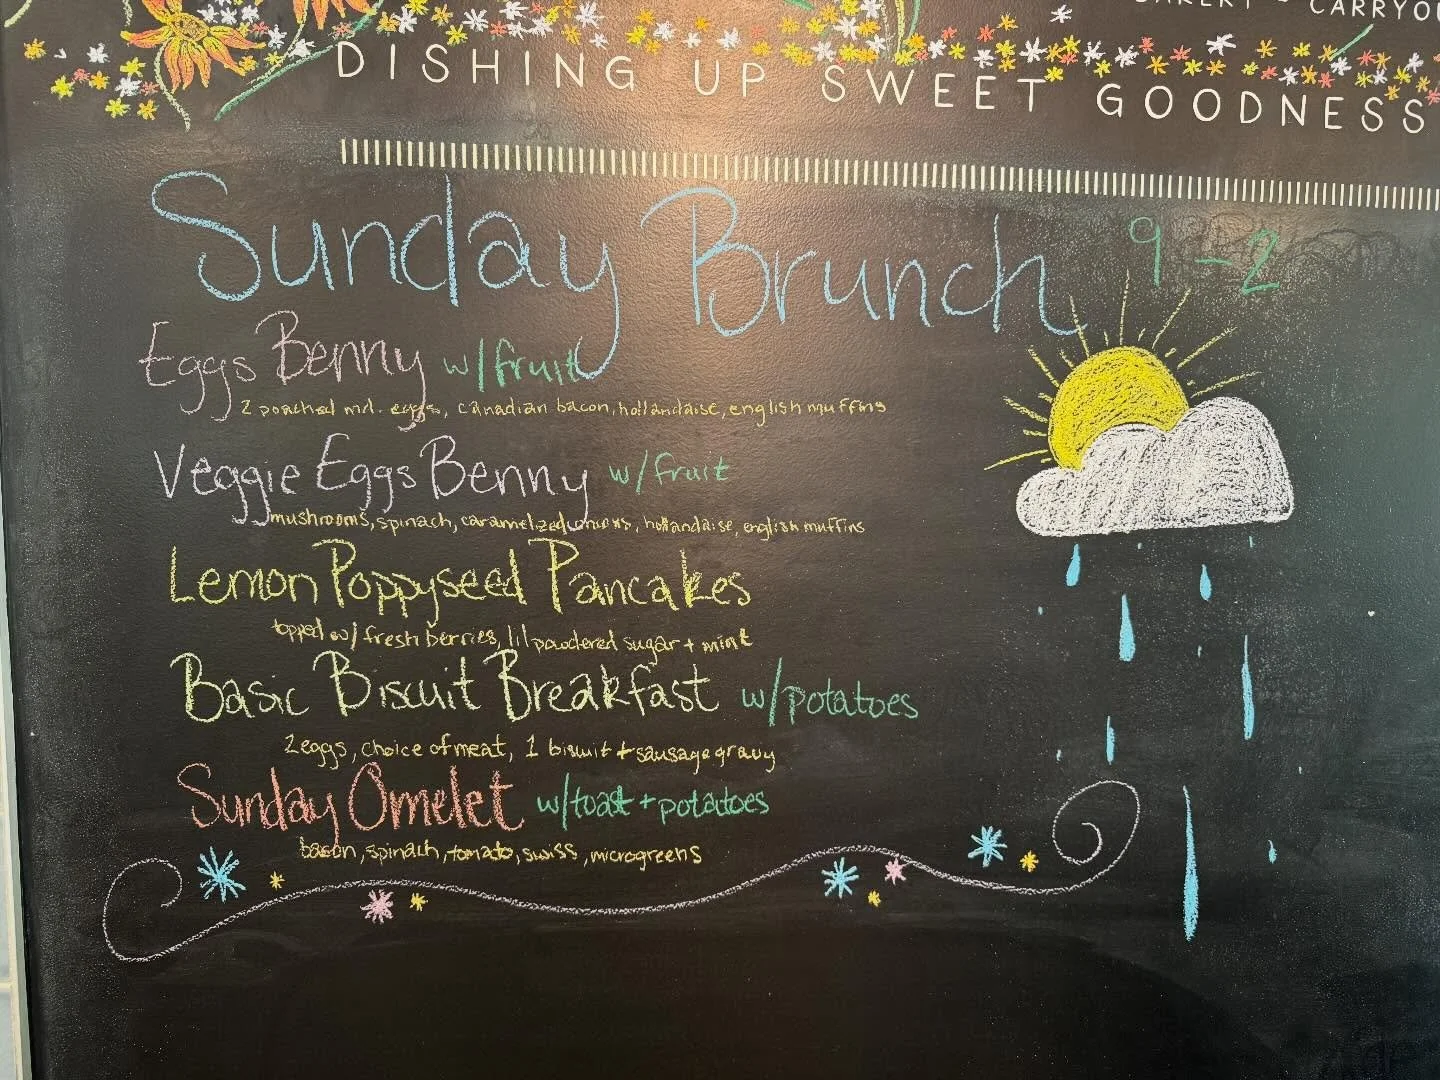 BAKERY - CARRYOU
DISHING UP SWEET GOODNESS
Sunday Brunch 9-2
Eggs Benny w/fruit
2 poached md. eggs, canadian bacon, hollandaise, english muffins
Veggie Eggs Benny w/fruit
mushrooms, spinach, caramelized onions, hollandaise, english muffins
Lemon Poppyseed Pancakes
topped w/ fresh berries, lil powdered sugar + mint
Basic Biscuit Breakfast w/potatoes
2 eggs, choice of meat, 1 biscuit + sausage gravy
Sunday Omelet w/toast + potatoes
bacon, spinach, tomato, swiss, microgreens